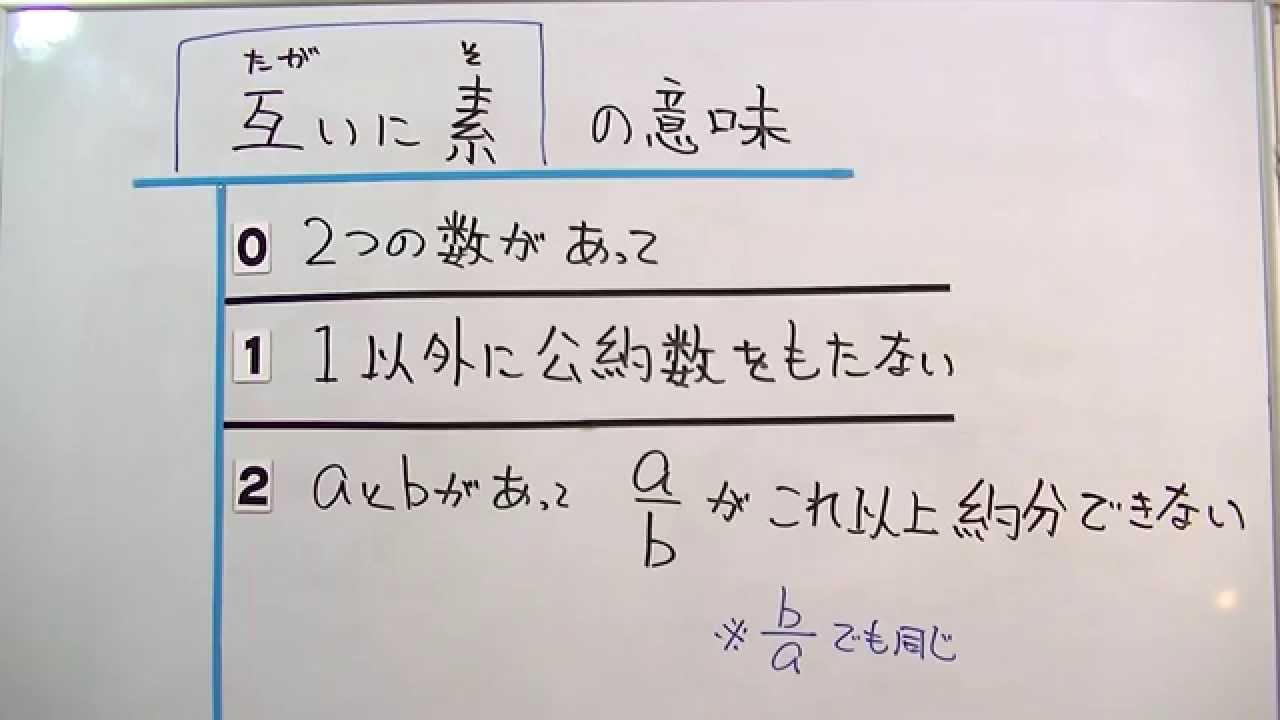 たが そ
互いに素 の意味
0 2つの数があって
1 1以外に公約数をもたない
2 aとbがあって a/b がこれ以上約分できない
※ b/a でも同じ